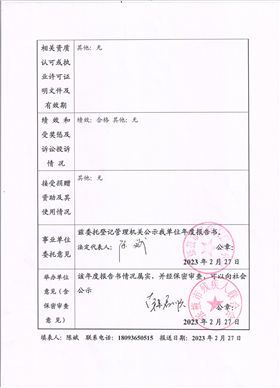 相关资质
认可或执
业许可证
明文件及
有效期
其他：无
绩效和
受奖惩及
诉讼投诉
情况
绩效：合格 其他：无
接受捐赠
资助及其
使用情况
其他：无
事业单位
委托意见
兹委托登记管理机关公示我单位年度报告书。
法定代表人：陈斌 公章：
2023 年 2 月 27 日
举办单位
意见（含
保密审查
意见）
该年度报告书情况属实，并经保密审查，可以向社会
公示
公章：
2023 年 2 月 27 日
填表人：陈斌 联系电话：18093650515 报送日期：2023 年 2 月 27 日